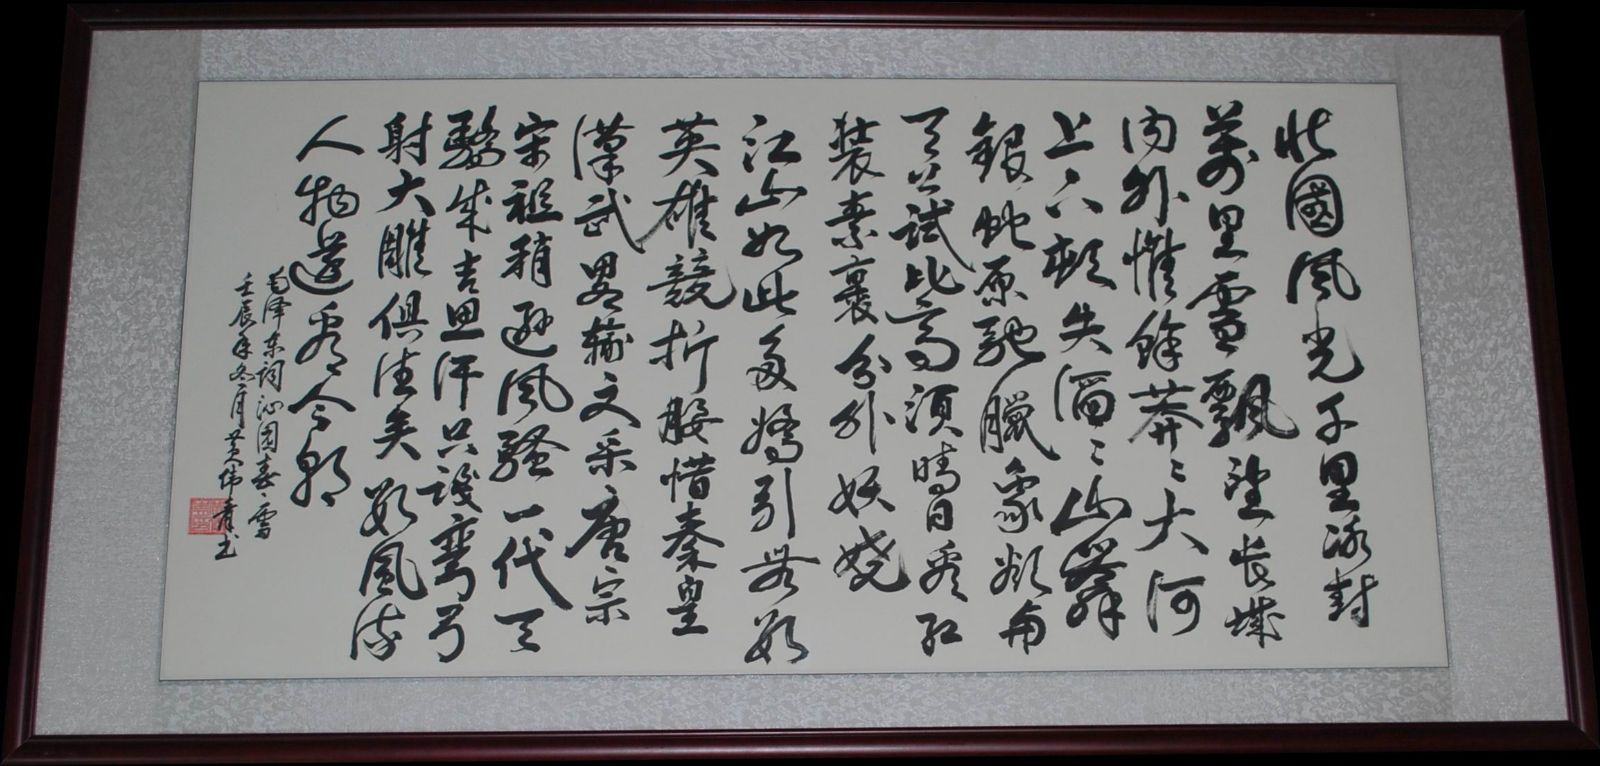 北國風光千里冰封
萬里雪飄望长城
内外惟餘莽〻大河
上下頓失滔〻山舞
銀蛇原馳臘象欲与
天公試比高須晴日看红
装素裹分外妖娆
江山如此多嬌引無數
英雄競折腰惜秦皇
漢武畧输文采唐宗
宋祖稍遜風騷一代天
驕成吉思汗只識彎弓
射大雕俱往矣數風流
人物還看今朝
毛泽东词沁园春·雪
壬辰年冬月黄伟 书